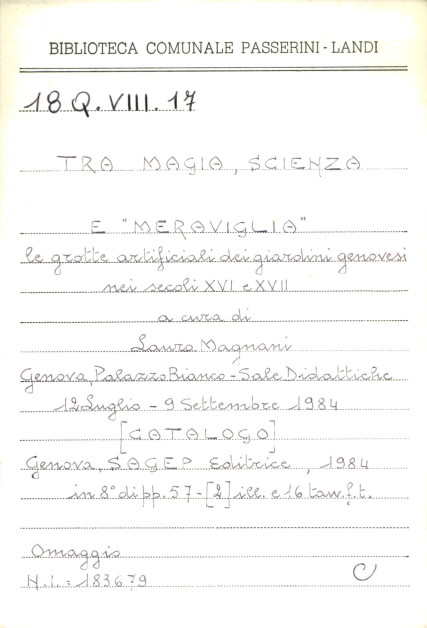 BIBLIOTECA COMUNALE PASSERINI-LANDI
18 Q. VIII. 17
TRA MAGIA, SCIENZA
E "MERAVIGLIA"
le grotte artificiali dei giardini genovesi
nei secoli XVI e XVII
a cura di
Lauro Magnani
Genova, Palazzo Bianco - Sale Didattiche
12 Luglio - 9 Settembre 1984
[CATALOGO]
Genova, SAGEP Editrice, 1984
in 8° di pp. 57-[2] ill. e 16 tavv. f.t.
Omaggio
N.i.: 183679
C